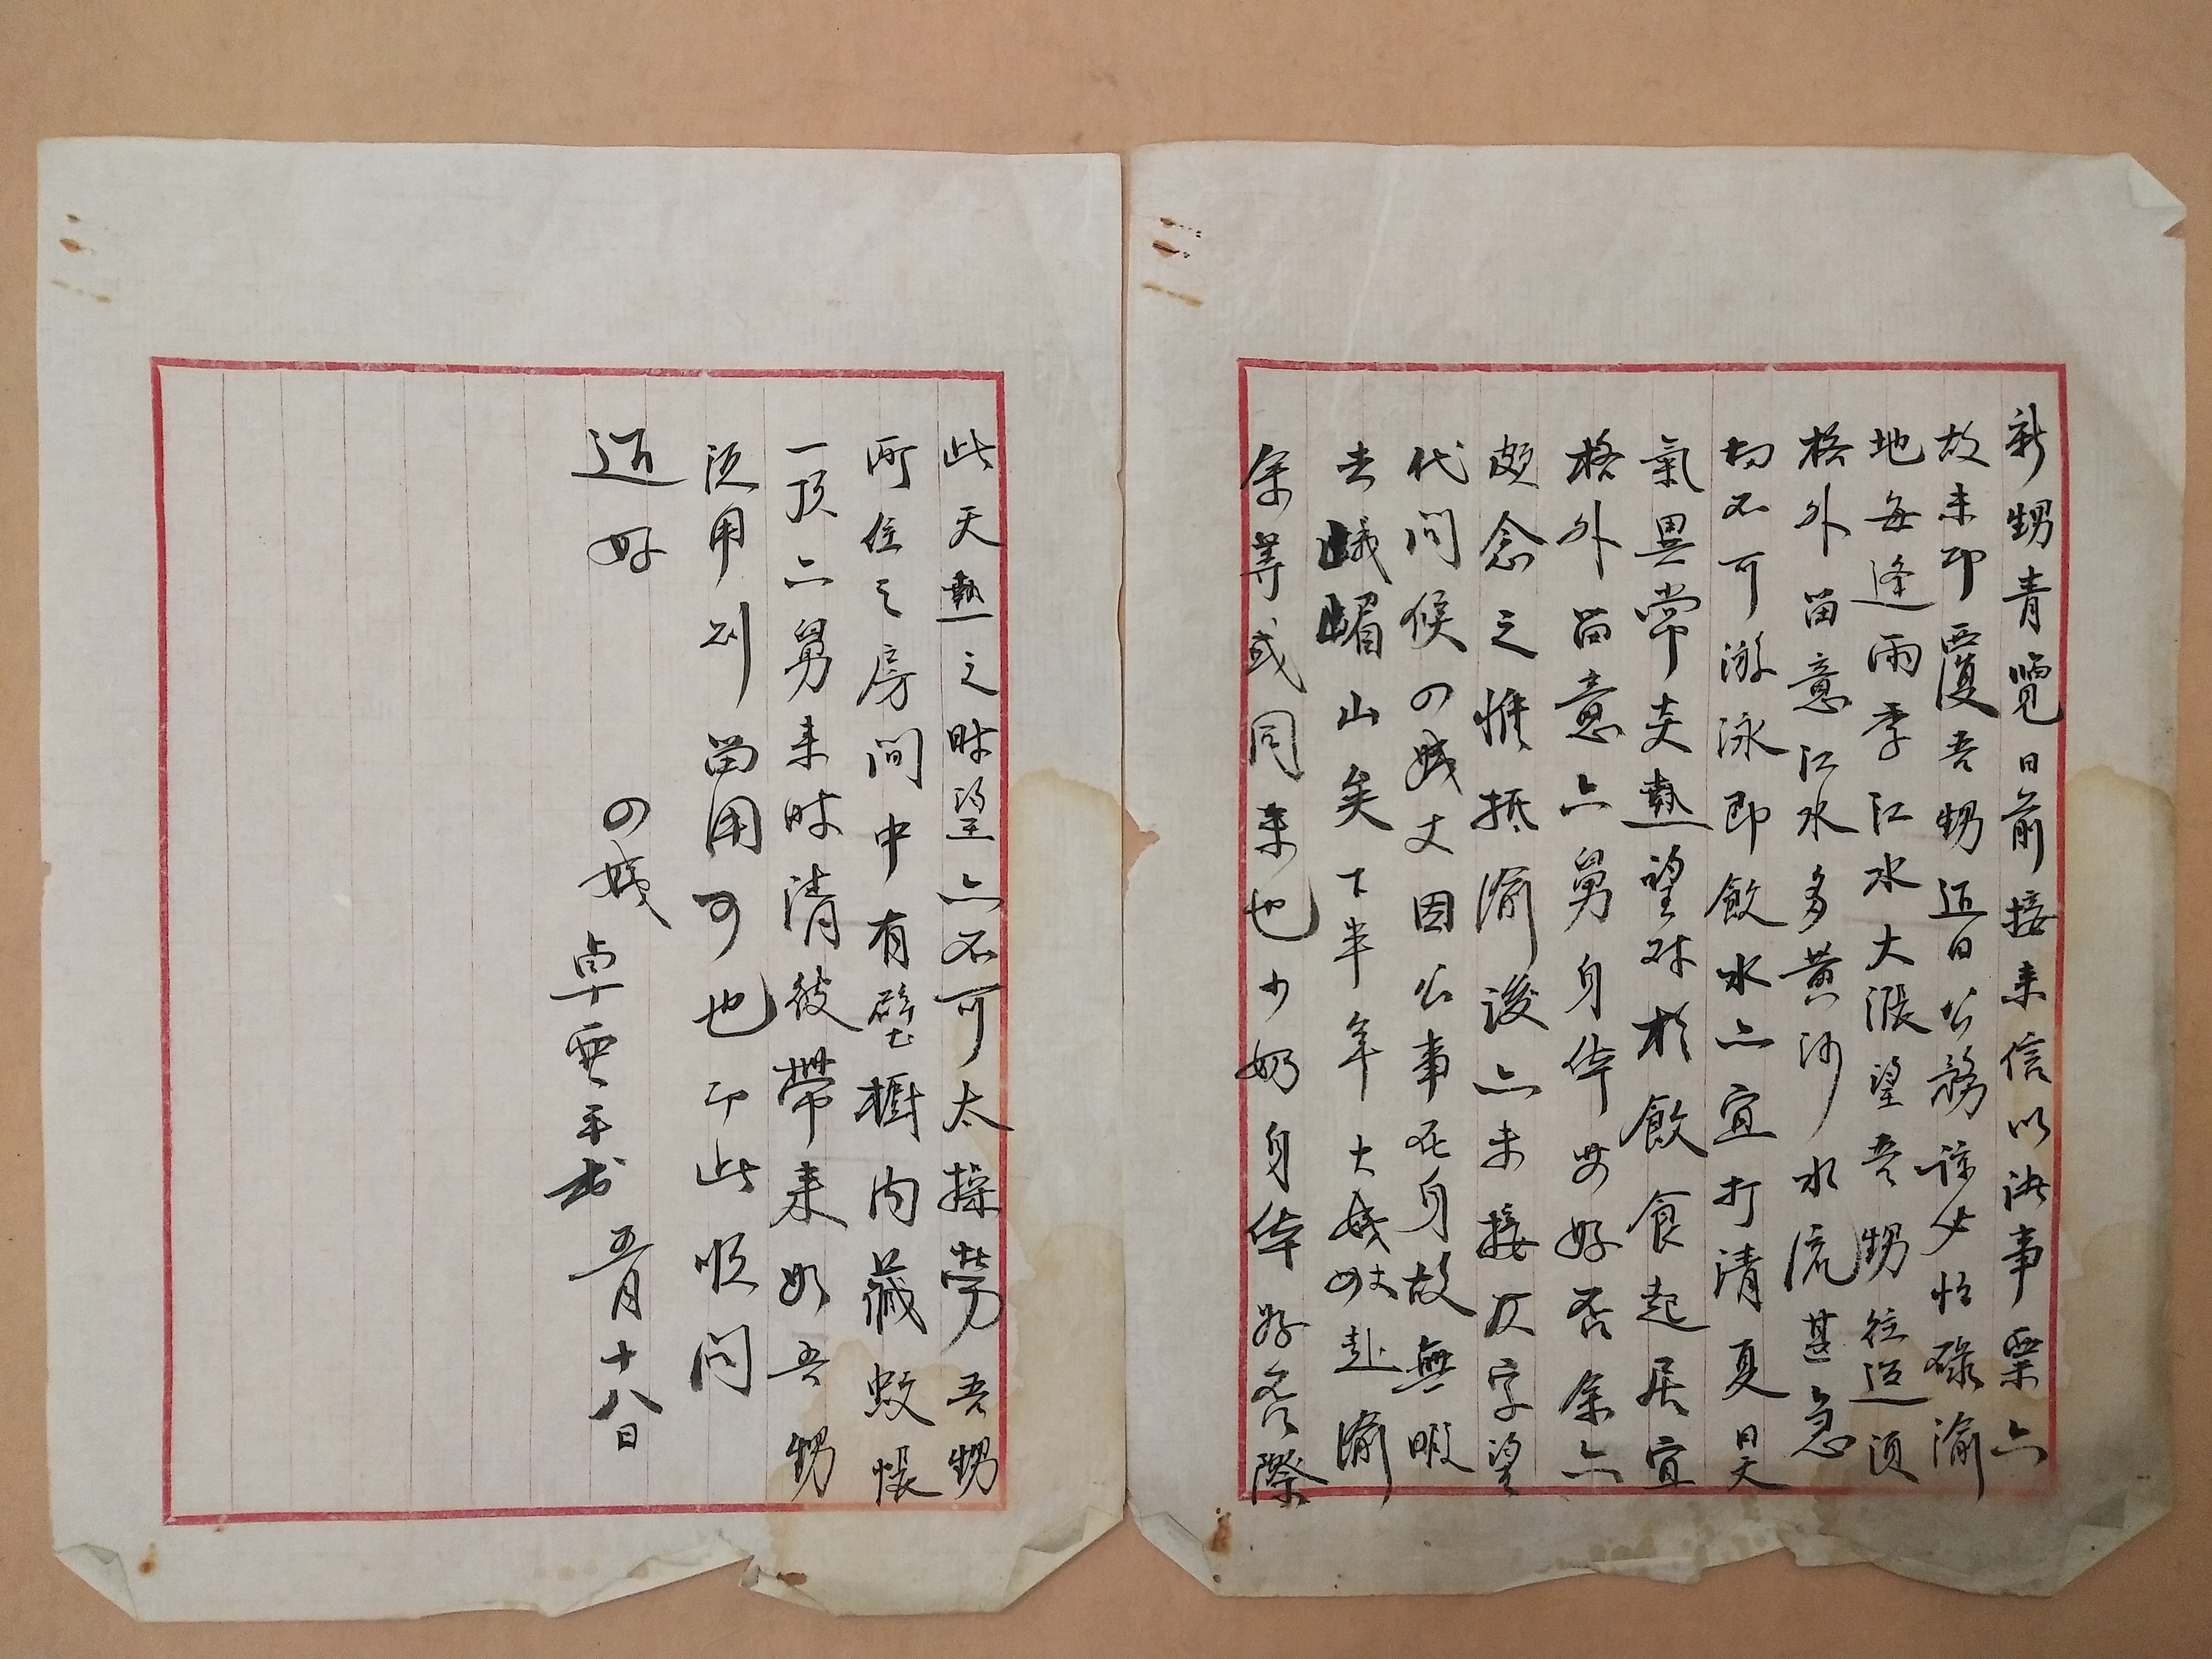 新甥青覽日前接来信以決事畢六
故未即覆吾甥近日公務諒必忙碌渝
地每逢雨季江水大漲望吾甥往返須
格外留意江水多黄沙水流甚急
切不可游泳即飲水六宜打清夏日天
氣異常炎熱望對於飲食起居宜
格外留意六舅身体安好否余六
頗念之惟抵渝後六未接隻字望
代問候四姨丈因公事在身故無暇
去峨嵋山矣下半年大姨姨丈赴渝
余等或同来也少奶身体好否際
此天熱之时望六不可太操勞吾甥
所住之房间中有壁橱内藏蚊帳
一顶六舅来时清彼帶来如吾甥
須用则留用可也即此順问
近好
四姨卓雲平书五月十八日